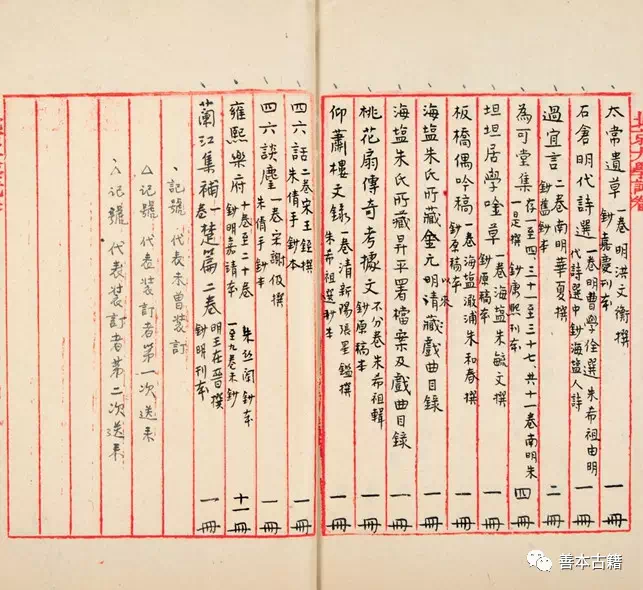 太常遺草 一卷明洪文衡撰 鈔嘉慶刊本 一冊
石倉明代詩選 一卷明曹學佺選朱希祖由明代詩選中鈔海鹽人詩 一冊
過宜言 二卷南明華夏撰 鈔舊鈔本 二冊
為可堂集 存一至四三十一至三十七、共十一卷南明朱一是撰 鈔康熙刊本 四冊
坦坦居學唫草 一卷海盐朱敏文撰 鈔原稿本 一冊
板橋偶吟稿 一卷海盐澉浦朱和春撰 鈔原稿本 一冊
海盐朱氏所藏金元明清以來藏戲曲目录 一冊
海盐朱氏所藏昇平署檔案及戲曲目录 一冊
桃花扇傳奇考據文 不分卷朱希祖輯 鈔原稿本 一冊
仰蕭樓文录 一卷清新陽張星鑑撰 朱希祖選抄本 一冊
四六話 二卷宋王銍撰 朱倩手鈔本 一冊
四六談麈 一卷宋謝伋撰 朱倩手鈔本 一冊
雍熙樂府 十卷至二十卷 鈔明嘉靖本 朱丝闌鈔本 一至九卷未鈔 十一冊
蘭江集補一卷楚篇二卷 明王在晉撰 鈔明刊本 一冊
、記號 代表未曾装訂
△记號 代表装訂者第一次送来
、人记號 代表装訂者第二次送来
善本古籍